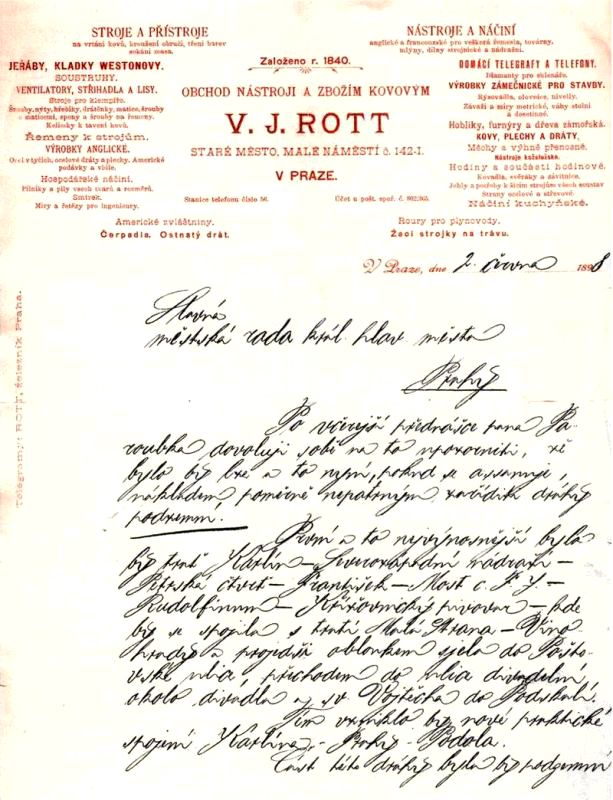 STROJE A PŘÍSTROJE
na vrtání kovů, kroužení obručí, tření barev
sekání masa.
JEŘÁBY, KLADKY WESTONOVY.
SOUSTRUHY.
VENTILATORY, STŘIHADLA A LISY.
Stroje pro klempíře.
Šrouby, nýty, hřebíky, drátěnky, matice, šrouby
s maticemi, spony a šrouby na řemeny.
Kelímky k tavení kovů.
Řemeny k strojům.
VÝROBKY ANGLICKÉ.
Ocel v tyčích, ocelové dráty a plechy. Americké
podávky a vidle.
Hospodářské náčiní.
Pilníky a pily všech tvarů a rozměrů.
Smirek.
Míry a řetězy pro ingenieury.
Americké zvláštniny.
Čerpadla. Ostnatý drát.
Založeno r. 1840.
OBCHOD NÁSTROJI A ZBOŽÍM KOVOVÝM
V. J. ROTT
STARÉ MĚSTO, MALÉ NÁMĚSTÍ č. 142-I.
V PRAZE.
Stanice telefonu číslo 56.
Účet u pošt. spoř. č. 802.205.
NÁSTROJE A NÁČINÍ
anglické a francouzské pro veškerá řemesla, továrny,
mlýny, dílny strojnické a nádražní.
DOMÁCÍ TELEGRAFY A TELEFONY.
Diamanty pro sklenáře.
VÝROBKY ZÁMEČNICKÉ PRO STAVBY.
Rýsovadla, olovnice, nivelly.
Závaží a míry metrické, váhy stolní
a desetinné.
Hoblíky, furnýry a dřeva zámořská.
KOVY, PLECHY A DRÁTY,
Měchy a výhně přenosné.
Nástroje kožešnické.
Hodiny a součásti hodinové.
Kovadla, svěráky a závitnice.
Jehly a potřeby k šicím strojům všech soustav
Struny ocelové a střevové.
Náčiní kuchyňské.
Roury pro plynovody.
Žací strojky na trávu.
Telegramy: ROTT, železník Praha.
V Praze, dne 2. června 1898
Slavná
městská rada král. hlav. města
Prahy
Po včerejší přednášce pana Pa-
roubka dovoluji sobě na to upozorniti, že
bylo by lze a to nyní, pokud se assanuje,
nákladem poměrně nepatrným zaříditi dráhy
podzemní.
První a to nejvýnosnější byla
by trať Karlín – Severozápadní nádraží –
Petrská čtvrť – František – Most c. F. J. –
Rudolfinum – Křižovnický pivovar – kde
by se spojila s tratí Malá Strana – Vino-
hrady a projedši obloukem sjela do Pošto-
vské ulici, přechodem do ulice divadelní,
okolo divadla a sv Vojtěcha do Podskalí.
Tím vzniklo by nové praktické
spojení Karlína – Prahy – Podola.
Část této dráhy byla by podzemní